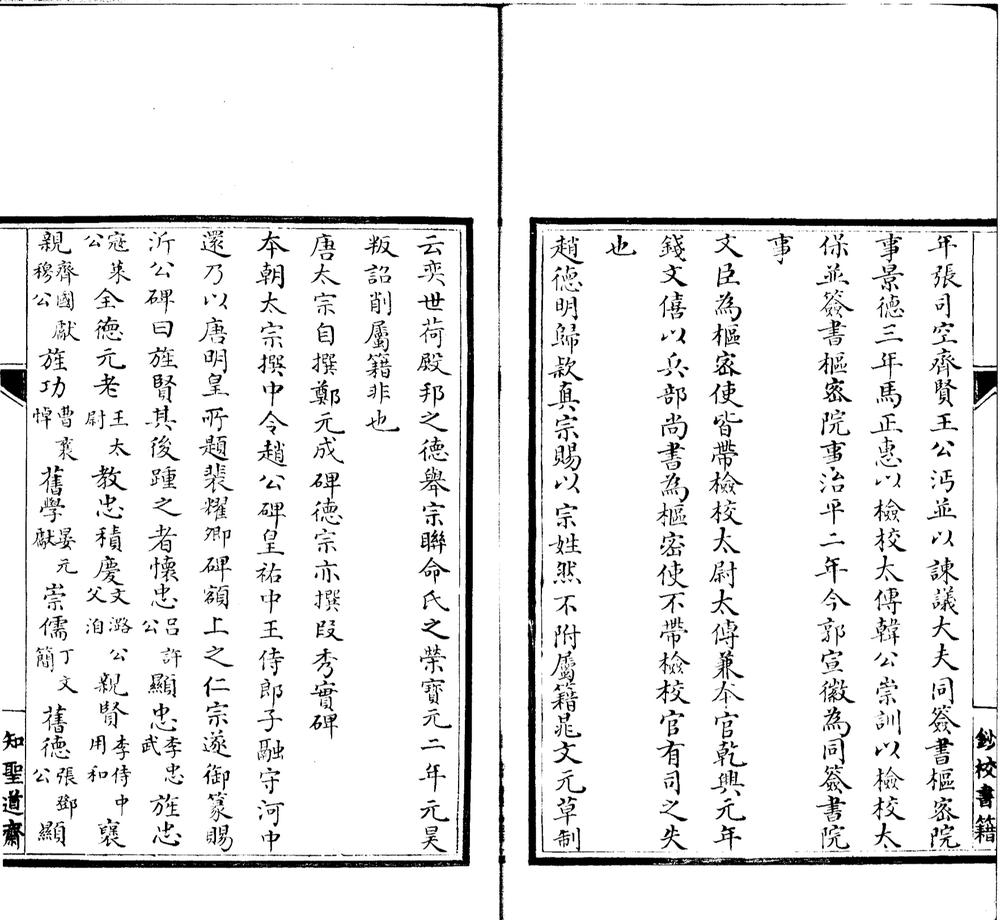 年張司空齊賢王公沔並以諫議大夫同簽書樞密院
事景德三年馬正惠以檢校太傅韓公崇訓以檢校太
保並簽書樞密院事治平二年今郭宣徽為同簽書院
事
文臣為樞密使皆帶檢校太尉太傅兼本官乾興元年
錢文僖以兵部尚書為樞密使不帶檢校官有司之失
也
趙德明歸款真宗賜以宗姓然不附屬籍晁文元草制
鈔校書籍
云奕世荷殿邦之德舉宗聯命氏之榮寶元二年元昊
叛詔削屬籍非也
唐太宗自撰鄭元成碑德宗亦撰段秀實碑
本朝太宗撰中令趙公碑皇祐中王侍郎子融守河中
還乃以唐明皇所題裴耀卿碑額上之仁宗遂御篆賜
沂公碑曰旌賢其後踵之者懷忠呂許公顯忠李忠武旌忠
寇萊公全德元老王太尉教忠積慶文潞公父洎親賢李侍中用和襄
親齊國獻穆公旌功曹襄悼舊學晏元獻崇儒丁文簡舊德張鄧公顯
知聖道齋